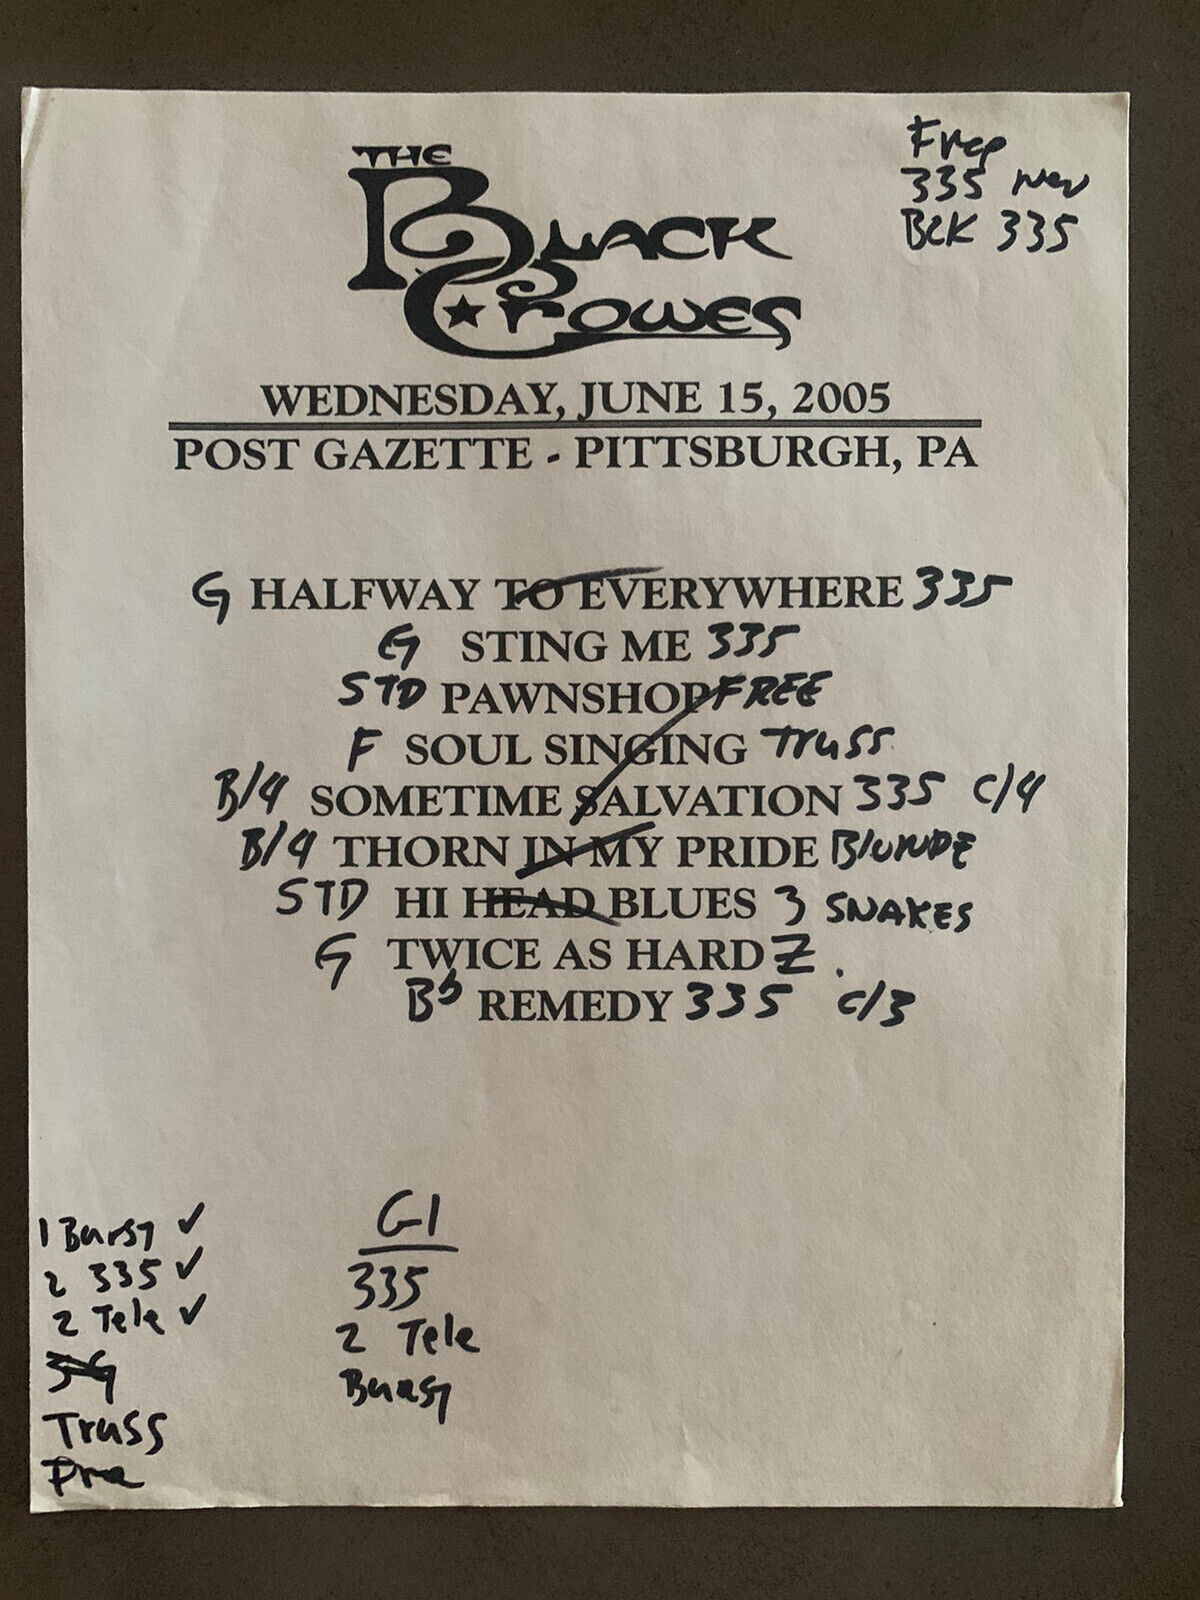 THE BLACK CROWES
Free
335 New
BCK 335
WEDNESDAY, JUNE 15, 2005
POST GAZETTE - PITTSBURGH, PA
G HALFWAY TO EVERYWHERE 335
G STING ME 335
STD PAWNSHOP FREE
F SOUL SINGING Truss
B/4 SOMETIME SALVATION 335 C/4
B/4 THORN IN MY PRIDE BlONDE
STD HI HEAD BLUES 3 SNAKES
G TWICE AS HARD Z
Bb REMEDY 335 C/3
1 Burst ✓
2 335 ✓
2 Tele ✓
3 G
Truss
G1
335
2 Tele
Burst